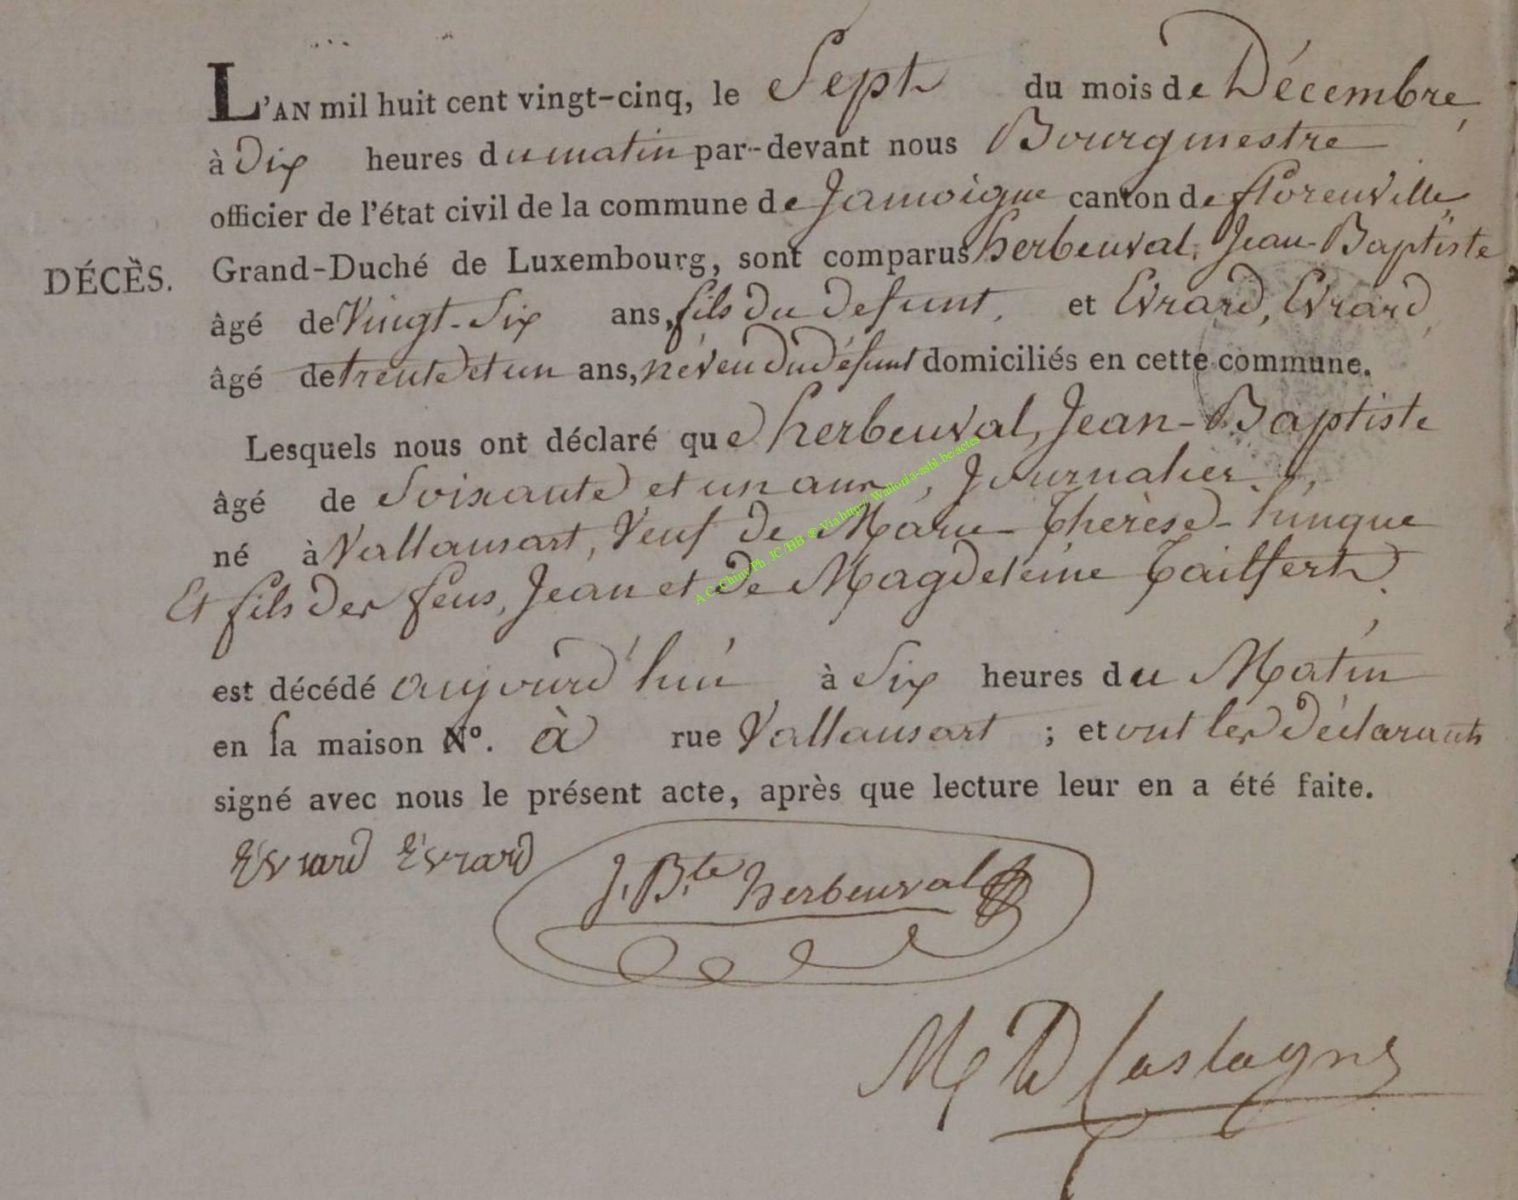 L'AN mil huit cent vingt-cinq, le Sept du mois de Décembre
à Dix heures du matin par-devant nous Bourgmestre
officier de l'état civil de la commune de Jamoigne canton de florenville
DÉCÈS. Grand-Duché de Luxembourg, sont comparus herbeuval, Jean-Baptiste
âgé de Vingt-Six ans, fils du defunt, et Evrard, Evrard,
âgé de trente et un ans, néveu du défunt domiciliés en cette commune.
Lesquels nous ont déclaré que herbeuval, Jean-Baptiste
âgé de Soixante et un ans, Journalier
né à Vallansart, Veuf de Marie-Thérèse
Et fils des feus, Jean et de Magdeleine
est décédé aujourd'hui à Six heures du Matin
en sa maison No. à rue Vallansart ; et ont les Déclarants
signé avec nous le présent acte, après que lecture leur en a été faite.
Evrard Evrard J. B.te herbeuval
A.C. Chiny Ph. JC/HB @ Via http:// Wallonia-asbl.be/actes